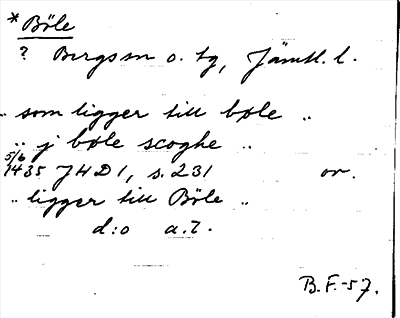 *Böle
? Bergs sn o. tg, Jämtl. l.
.. som ligger till bøle ..
.. j bøle scoghe ..
5/6 1435 JHD 1, s. 231 or.
.. ligger till Böle ..
d:o a.t.
B.F.-57.